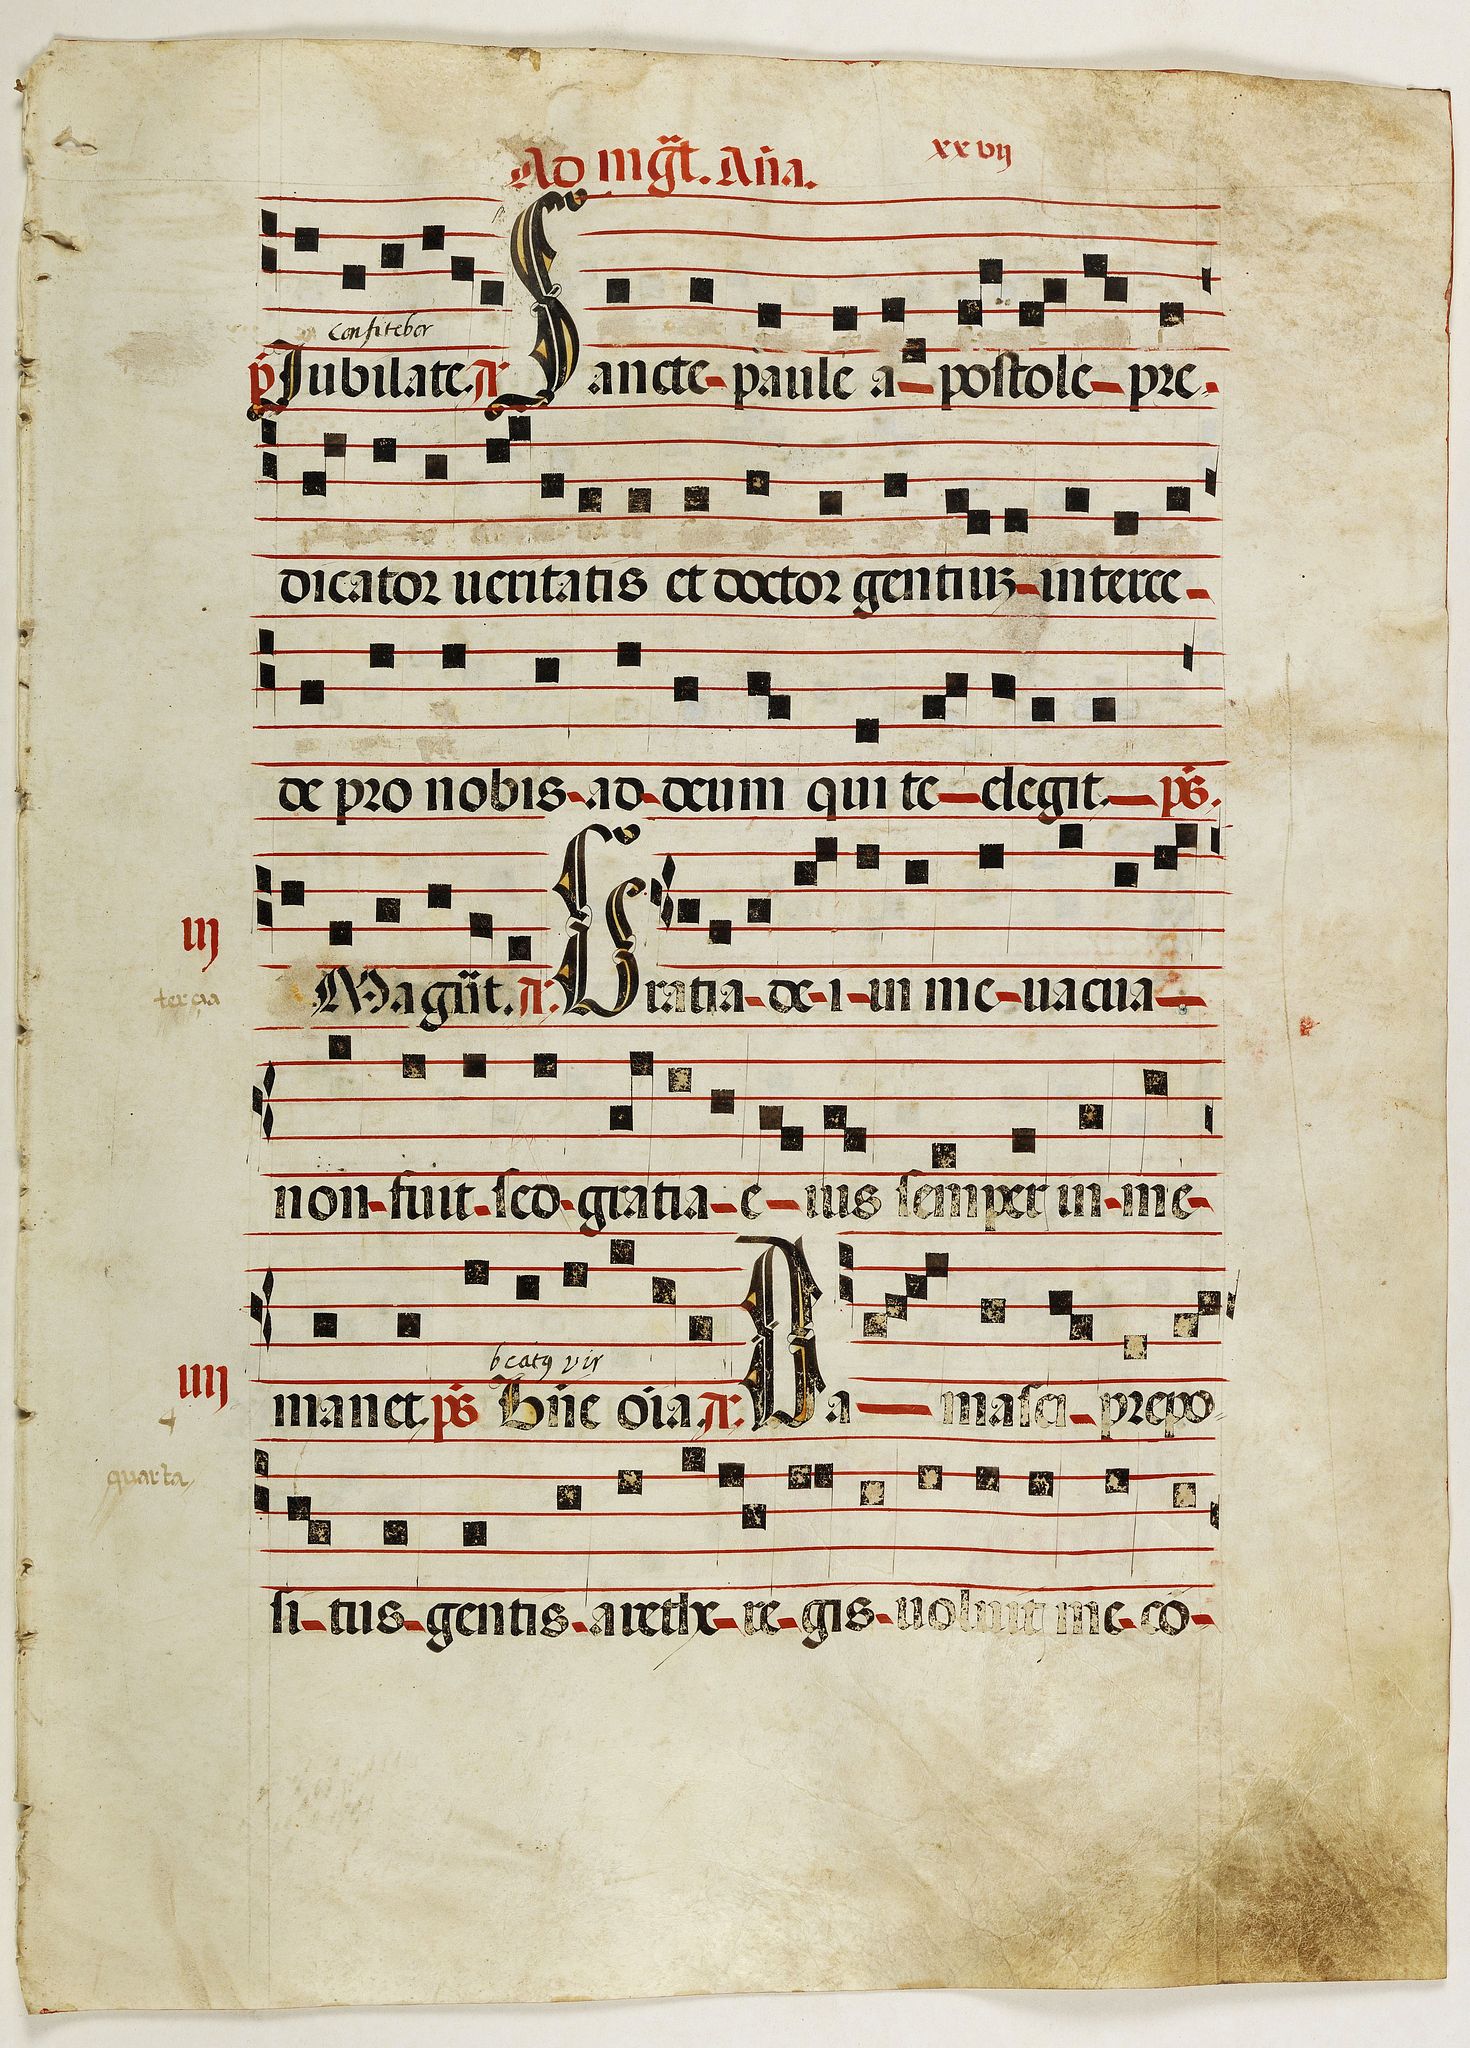 Ad mg̃t. Aña. xxvij
confitebor
p̃ Jubilate. A Sancte paule apostole pre-
dicator ueritatis et doctor gentiuz interce-
de pro nobis ad deum qui te elegit. ps̃.
iij
Magñt. A. Gratia dei in me uacua
tercia
non fuit sed gratia eius semper in me
beatꝯ vir
iiij
manet. ps̃ Bñe oĩa. A. Damasci prepo-
quarta
situs gentis arethe regis uoluit me cõ-